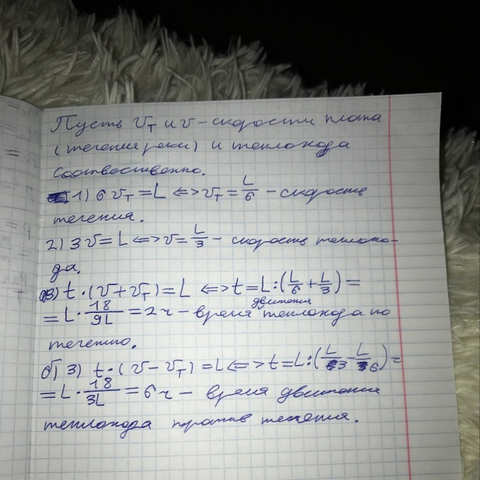 Пусть Vт и V - скорости плота
(течения реки) и теплохода
соответственно.
1) 6Vт = L <=> Vт = L/6 - скорость
течения.
2) 3V = L <=> V = L/3 - скорость теплохо-
да.
3) t·(V+Vт) = L <=> t = L:(L/6 + L/3) =
= L·18/9L = 2ч - время движения теплохода по
течению.
б) 3) t·(V-Vт) = L <=> t = L:(L/3 - L/6) =
= L·18/3L = 6ч - время движения
теплохода против течения.